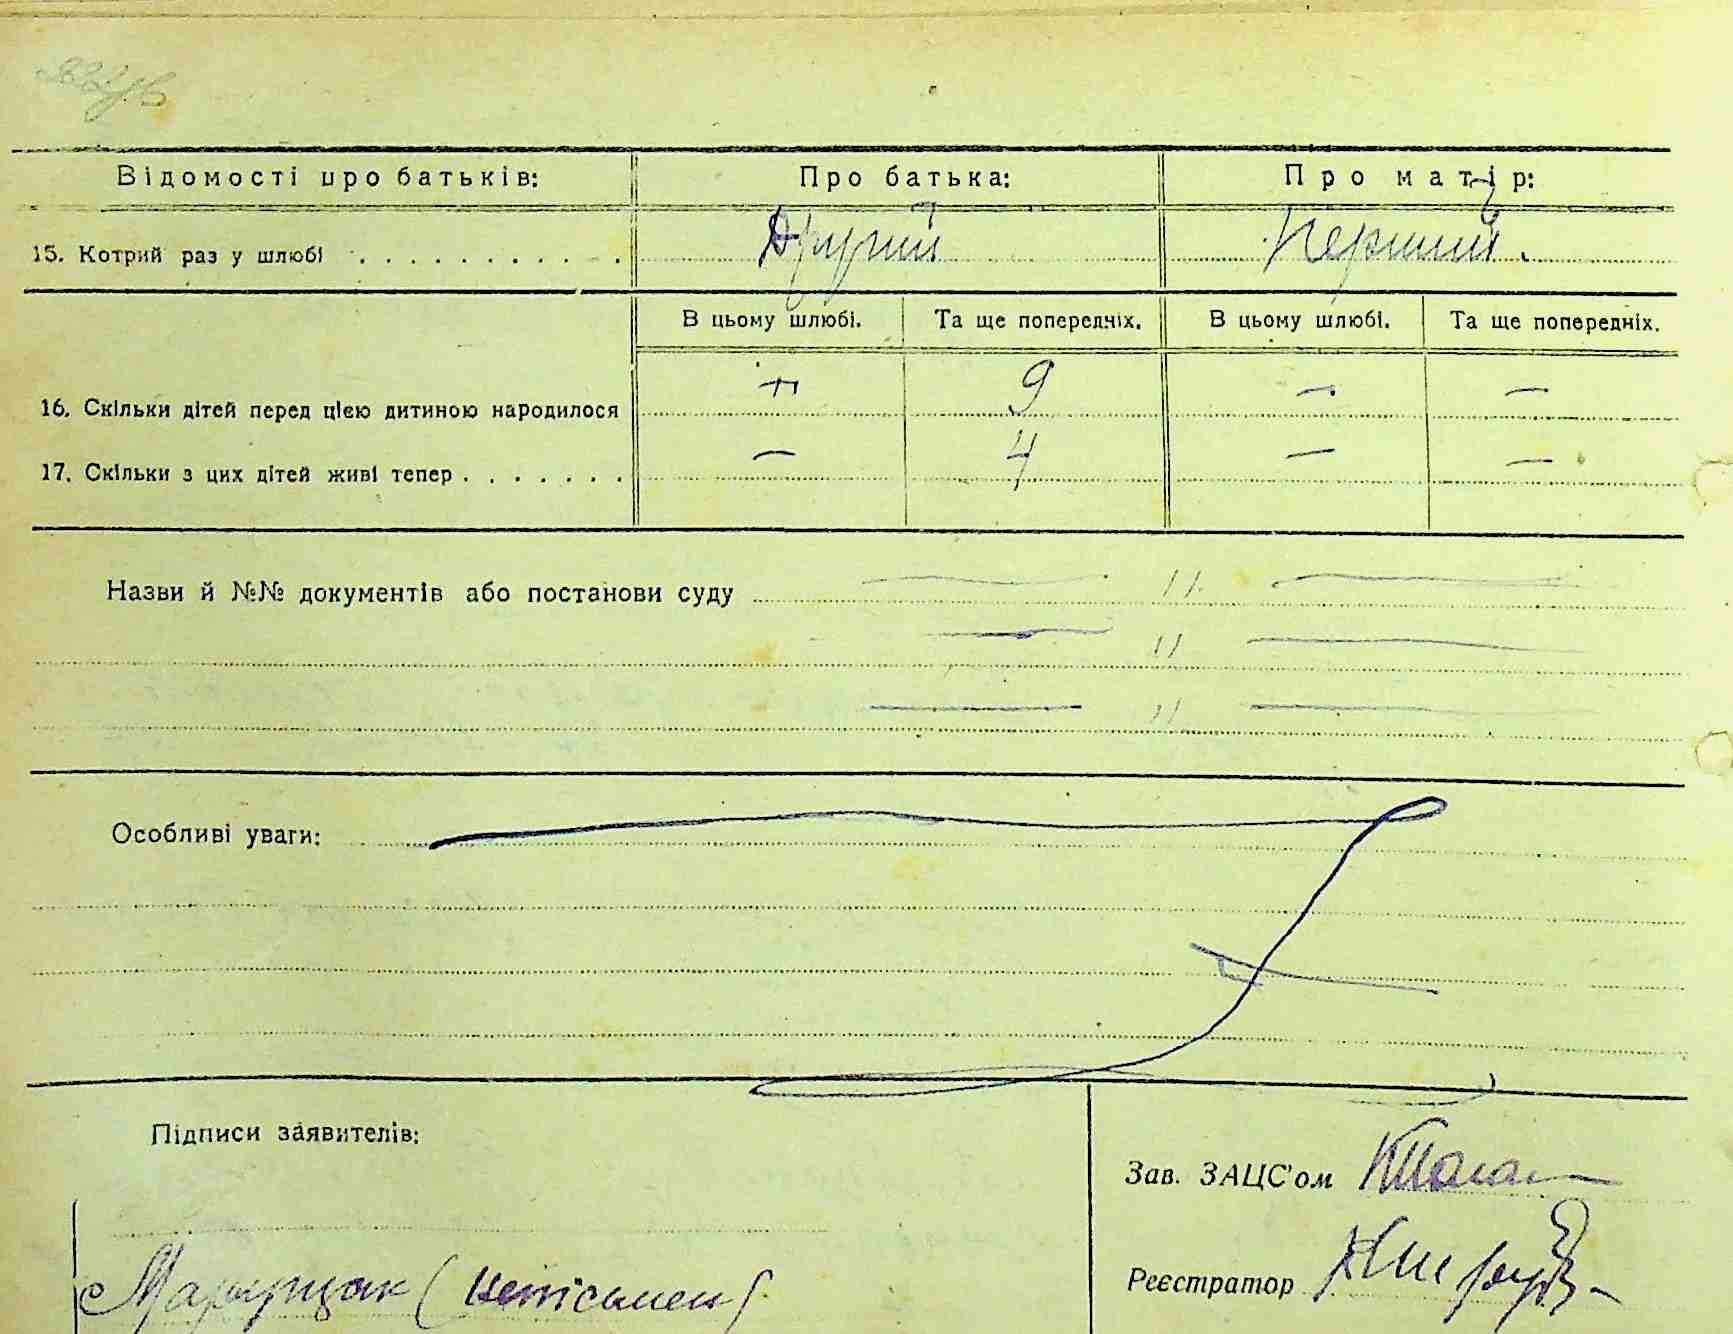 Відомості про батьків: Про батька: Про матір:
15. Котрий раз у шлюбі . . . . . . . . . . . Другий Перший.
В цьому шлюбі. Та ще попередніх. В цьому шлюбі. Та ще попередніх.
16. Скільки дітей перед цією дитиною народилося — 9 — —
17. Скільки з цих дітей живі тепер . . . . . . . — 4 — —
Назви й №№ документів або постанови суду — " —
— " —
— " —
Особливі уваги:
Підписи заявителів:
Зав. ЗАЦС'ом
Реєстратор
Марущак (неписьмен)